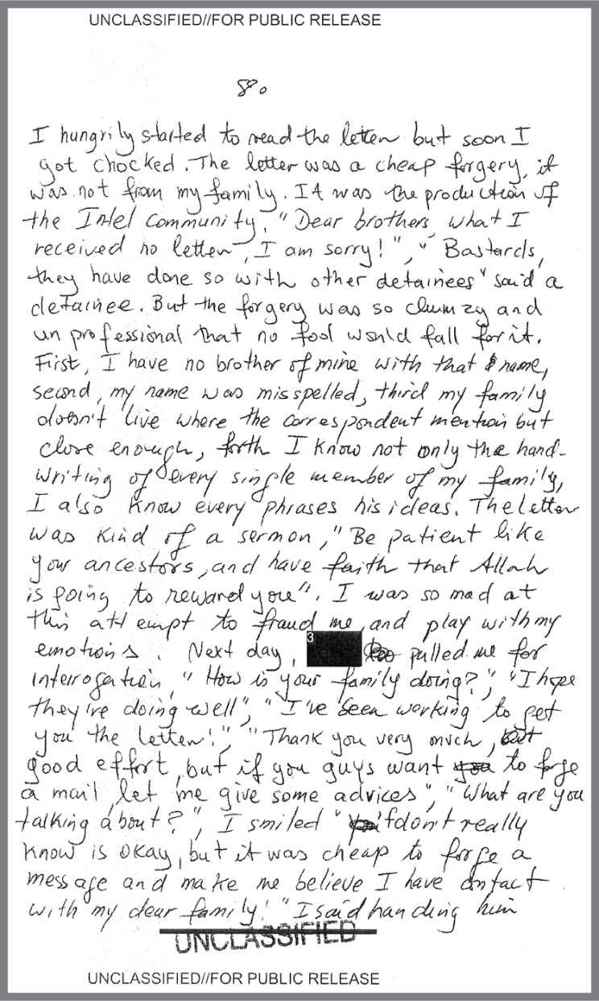 UNCLASSIFIED//FOR PUBLIC RELEASE
80
I hungrily started to read the letter but soon I
got chocked. The letter was a cheap forgery, it
was not from my family. It was the production of
the Intel community! "Dear brothers, what I
received no letter, I am sorry!", "Bastards,
they have done so with other detainees" said a
detainee. But the forgery was so clumzy and
un professional that no fool would fall for it.
First, I have no brother of mine with that name,
second, my name was misspelled, third my family
doesn't live where the correspondent mention but
close enough, forth I know not only the hand-
writing of every single member of my family,
I also know every phrases his ideas. The letter
was kind of a sermon, "Be patient like
your ancestors, and have faith that Allah
is going to reward you". I was so mad at
this attempt to fraud me, and play with my
emotions. Next day, 3 pulled me for
interrogation, "How is your family doing?", "I hope
they're doing well", "I've been working to get
you the letter!", "Thank you very much,
good effort, but if you guys want to forge
a mail, let me give some advices", "What are you
talking about?", I smiled "if don't really
know is okay, but it was cheap to forge a
message and make me believe I have contact
with my dear family!" I said handing him
UNCLASSIFIED
UNCLASSIFIED//FOR PUBLIC RELEASE